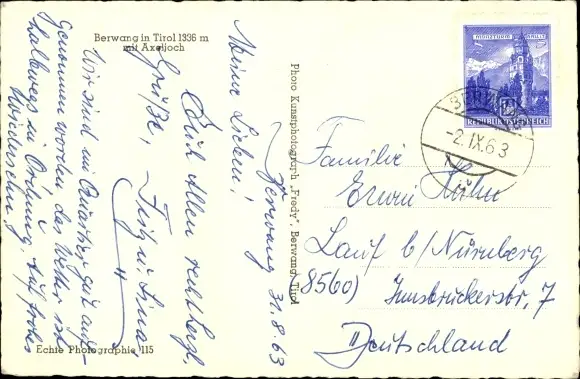 Berwang in Tirol 1336 m
mit Axeljoch
Berwang 31.8.63
Meine Lieben!
Wir sind im Quartier gut auf-
genommen worden, das Wetter ist
halbwegs in Ordnung. Auf frohes
Wiedersehn!
Euch Allen recht herzl.
Grüße, Fritz u. Lina
Echte Photographie 115
Photo Kunstphotograph „Fredy", Berwang, Tirol
MÜNZTURM HALL I. T.
REPUBLIK ÖSTERREICH
BERWANG
-2.IX.63
Familie
Erwin Höhn
Lauf b/Nürnberg
(8560) Innsbruckerstr. 7
Deutschland